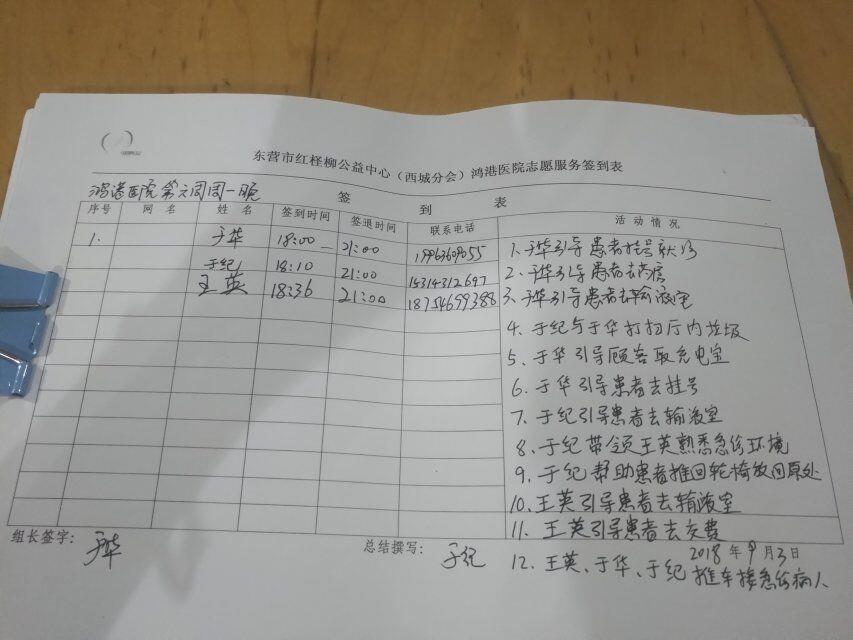 东营市红柽柳公益中心（西城分会）鸿港医院志愿服务签到表
鸿港医院第六周周一晚
签 到 表
序号 网名 姓名 签到时间 签退时间 联系电话 活动情况
1. 于华 18:00 21:00
于纪 18:10 21:00 15314312697
王英 18:36 21:00 18754699388
1.于华引导患者挂号就诊
2.于华引导患者去药房
3.于华引导患者去输液室
4.于纪与于华打扫厅内垃圾
5.于华引导顾客取充电宝
6.于华引导患者去挂号
7.于纪引导患者去输液室
8.于纪带领王英熟悉急诊环境
9.于纪帮助患者推回轮椅放回原处
10.王英引导患者去输液室
11.王英引导患者去交费
组长签字： 于华 总结撰写： 于纪 2018年9月3日
12.王英、于华、于纪推车接急诊病人